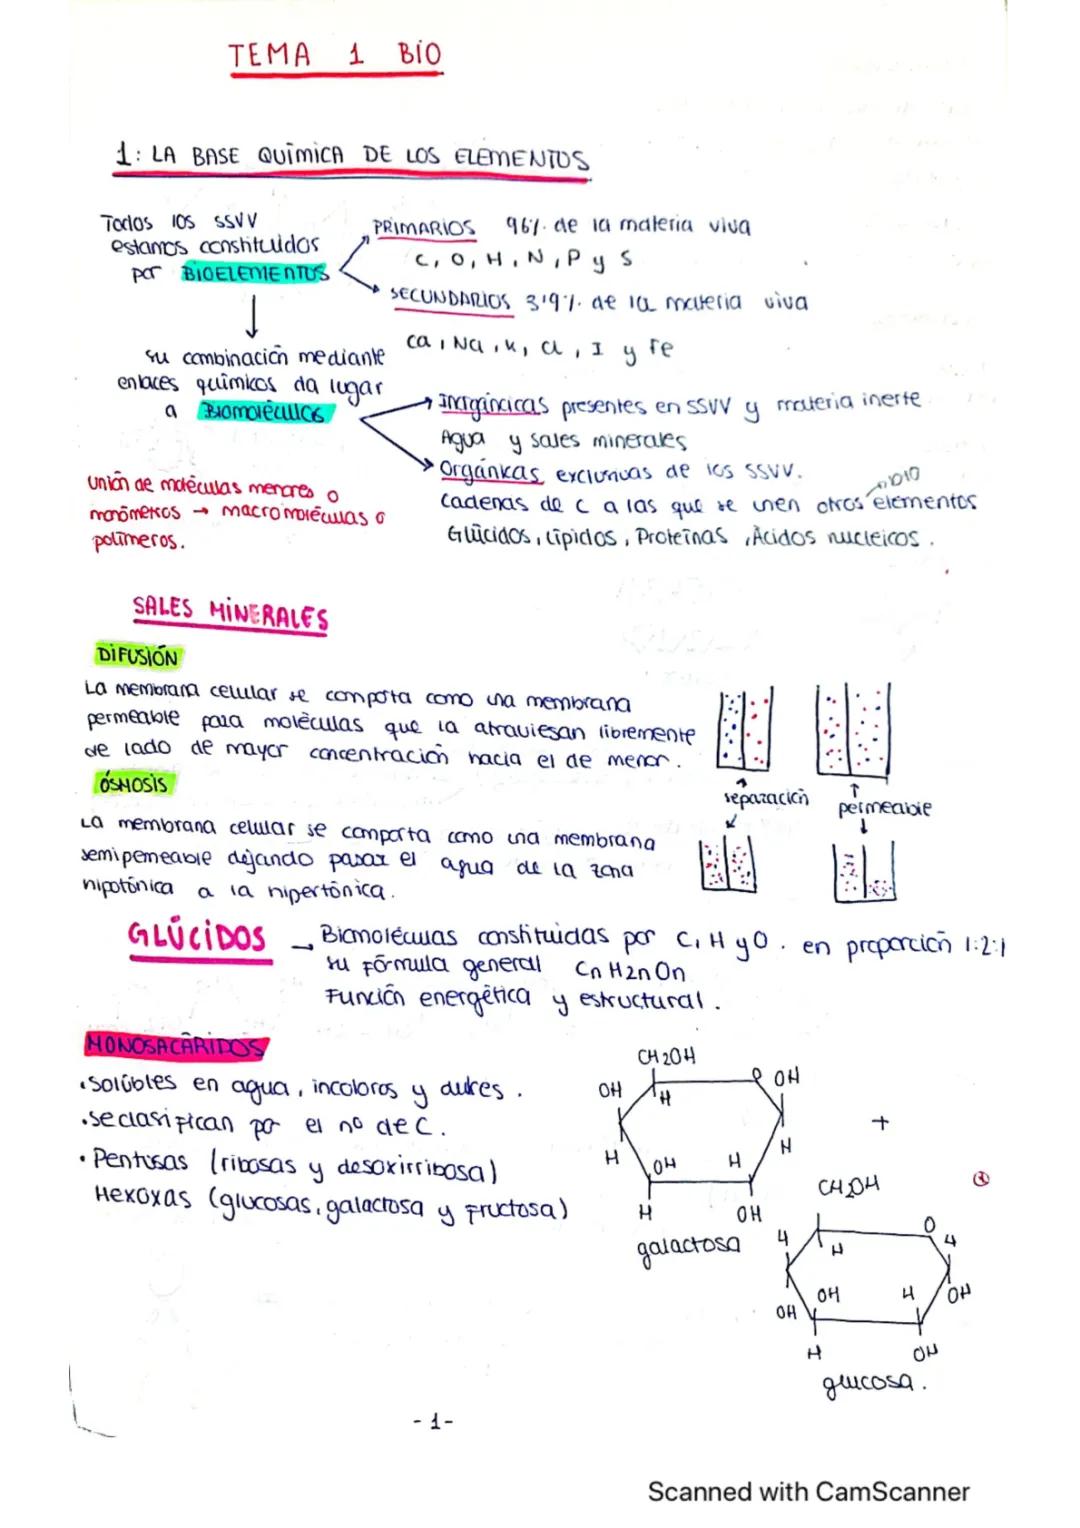 TEMA 1 BIO
1: LA BASE QUÍMICA DE LOS ELEMENTOS
Todos los SSVV
estamos constituidos
por BIOELEMENTOS
PRIMARIOS 96% de la materia viva
C, O, H, N, P y S
SECUNDARIOS 3'9% de la materia viva
Ca, Na, K, Cl, I y Fe
su combinación mediante
enlaces químicos da lugar
a Biomoléculas
Inorgánicas presentes en SSVV y materia inerte
Agua y sales minerales
Orgánicas exclusivas de los SSVV.
Cadenas de C a las que se unen otros bioelementos
Glúcidos, Lípidos, Proteínas, Ácidos nucleicos.
Unión de moléculas menores o
monómeros → macromoléculas o
polímeros.
SALES MINERALES
DIFUSIÓN
La membrana celular se comporta como una membrana
permeable para moléculas que la atraviesan libremente
de lado de mayor concentración hacia el de menor.
separación
permeable
ÓSMOSIS
La membrana celular se comporta como una membrana
semipemeable dejando pasar el agua de la zona
hipotónica a la hipertónica.
GLÚCIDOS → Biomoléculas constituidas por C, H y O. en proporción 1:2:1
su fórmula general CnH2nOn
Función energética y estructural.
MONOSACÁRIDOS
• Solúbles en agua, incoloros y dulces.
• Se clasifican por el nº de C.
• Pentosas (ribosas y desoxirribosa)
Hexoxas (glucosas, galactosa y Fructosa)
CH2OH
OH O OH
H
H OH H H
H OH
galactosa
+
CH2OH
H O H
H
OH OH H OH
H OH
glucosa.
- 1 -
Scanned with CamScanner